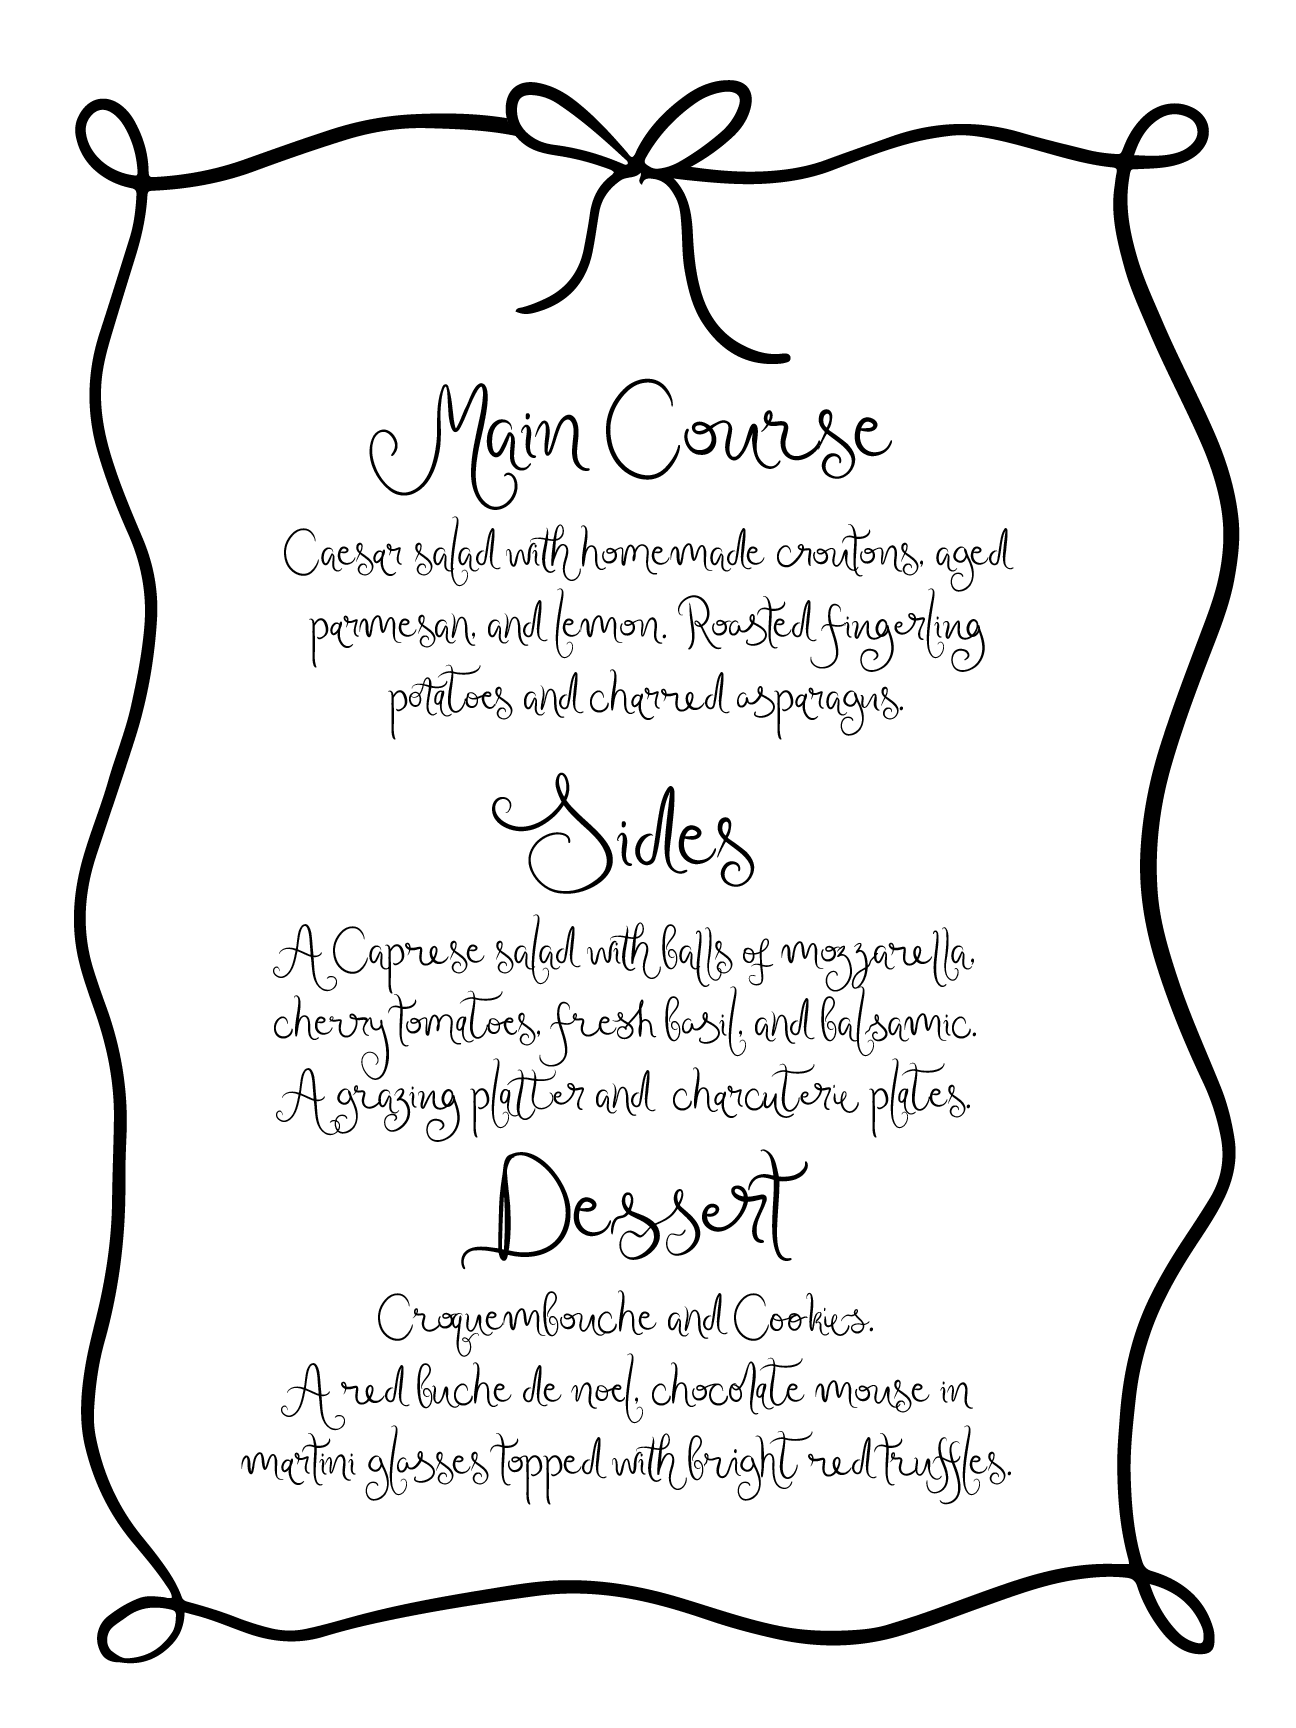 Main Course
Caesar salad with homemade croutons, aged
parmesan, and lemon. Roasted fingerling
potatoes and charred asparagus.
Sides
A Caprese salad with balls of mozzarella,
cherry tomatoes, fresh basil, and balsamic.
A grazing platter and charcuterie plates.
Dessert
Croquembouche and Cookies.
A red buche de noel, chocolate mouse in
martini glasses topped with bright red truffles.